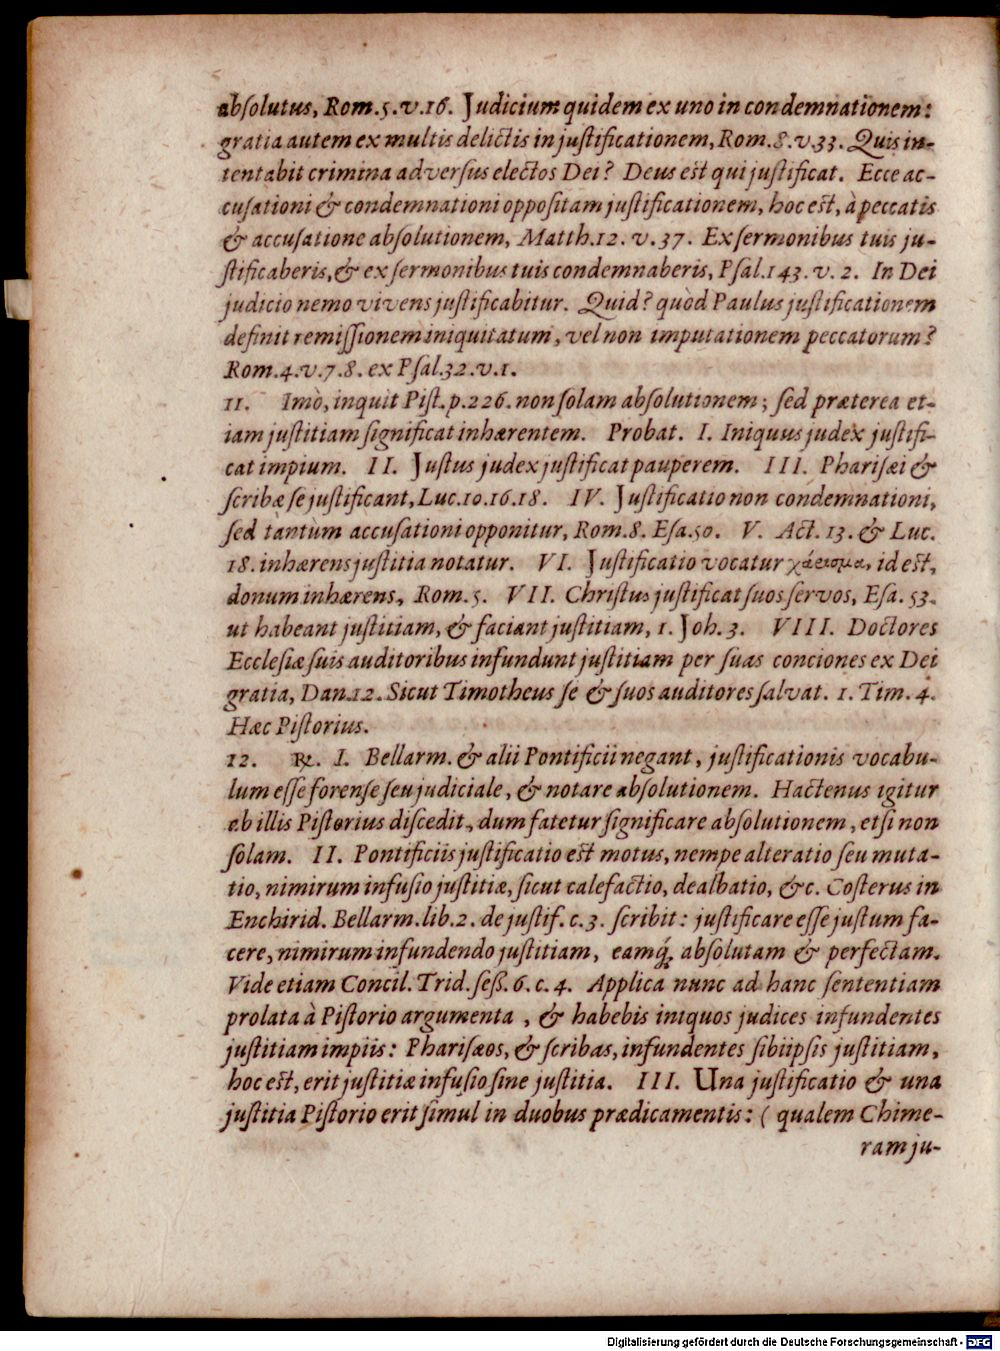 absolutus, Rom.5.v.16. Judicium quidem ex uno in condemnationem:
gratia autem ex multis delictis in justificationem, Rom.8.v.33. Quis in-
tentabit crimina adversus electos Dei? Deus est qui justificat. Ecce ac-
cusationi & condemnationi oppositam justificationem, hoc est, à peccatis
& accusatione absolutionem, Matth.12. v. 37. Ex sermonibus tuis ju-
stificaberis, & ex sermonibus tuis condemnaberis, Psal.143. v. 2. In Dei
judicio nemo vivens justificabitur. Quid? quòd Paulus justificationem
definit remissionem iniquitatum, vel non imputationem peccatorum?
Rom.4.v.7.8. ex Psal.32.v.1.
11. Imò, inquit Pist.p.226. non solam absolutionem; sed præterea et-
iam justitiam significat inhærentem. Probat. I. Iniquus judex justifi-
cat impium. II. Justus judex justificat pauperem. III. Pharisæi &
scribæ se justificant, Luc.10.16.18. IV. Justificatio non condemnationi,
sed tantùm accusationi opponitur, Rom.8. Esa.50. V. Act. 13. & Luc.
18. inhærens justitia notatur. VI. Justificatio vocatur χάρισμα, id est,
donum inhærens, Rom.5. VII. Christus justificat suos servos, Esa. 53.
ut habeant justitiam, & faciant justitiam, 1. Joh. 3. VIII. Doctores
Ecclesiæ suis auditoribus infundunt justitiam per suas conciones ex Dei
gratia, Dan.12. Sicut Timotheus se & suos auditores salvat. 1. Tim. 4.
Hæc Pistorius.
12. ℞. I. Bellarm. & alii Pontificii negant, justificationis vocabu-
lum esse forense seu judiciale, & notare absolutionem. Hactenus igitur
ab illis Pistorius discedit, dum fatetur significare absolutionem, etsi non
solam. II. Pontificiis justificatio est motus, nempe alteratio seu muta-
tio, nimirum infusio justitiæ, sicut calefactio, dealbatio, &c. Costerus in
Enchirid. Bellarm.lib.2. de justif. c.3. scribit: justificare esse justum fa-
cere, nimirum infundendo justitiam, eamq́; absolutam & perfectam.
Vide etiam Concil. Trid. seß. 6. c. 4. Applica nunc ad hanc sententiam
prolata à Pistorio argumenta, & habebis iniquos judices infundentes
justitiam impiis: Pharisæos, & scribas, infundentes sibiipsis justitiam,
hoc est, erit justitiæ infusio sine justitia. III. Una justificatio & una
justitia Pistorio erit simul in duobus prædicamentis: ( qualem Chime-
ram ju-
Digitalisierung gefördert durch die Deutsche Forschungsgemeinschaft - DFG